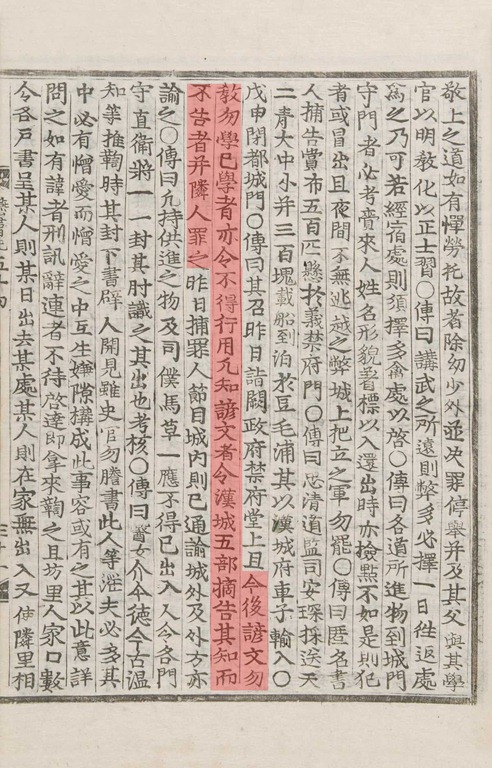 敬上之道如有憚勞托故者除勿少外並决罪停擧并及其父與其學
官以明敎化以正士習〇傳曰講武之所遠則弊多必擇一日往返處
爲之乃可若經宿處則須擇多禽處以啓〇傳曰各道所進物到城門
守門者必考賫來人姓名形貌着標以入還出時亦撿點不如是則犯
者或冒出且夜間不無逃越之弊城上把立之軍勿罷〇傳曰匿名書
人捕告賞布五百匹懸於義禁府門〇傳曰忠淸道監司安琛採送天
二靑大中小并三百塊載船到泊於豆毛浦其以漢城府車子輸入〇
戊申閉都城門〇傳曰其召昨日詣闕政府禁府堂上且今後諺文勿
敎勿學已學者亦令不得行用凡知諺文者令漢城五部摘告其知而
不告者并隣人罪之昨日捕罪人節目城內則已通諭城外及外方亦
諭之〇傳曰凡持供進之物及司僕馬草一應不得已出入人令各門
守直衛將一一封其肘識之其出也考核〇傳曰醫女介今德今古溫
知等推鞫時其封下書辟人開見雖史官勿謄書此人等淫夫必多其
中必有憎愛而憎愛之中互生嫌隙構成此事容或有之其以此意詳
問之如有諱者刑訊辭連者不待啓達卽拿來鞫之且坊里人家口數
令各戶書呈某人則某日出去某處某人則在家無出入又使隣里相